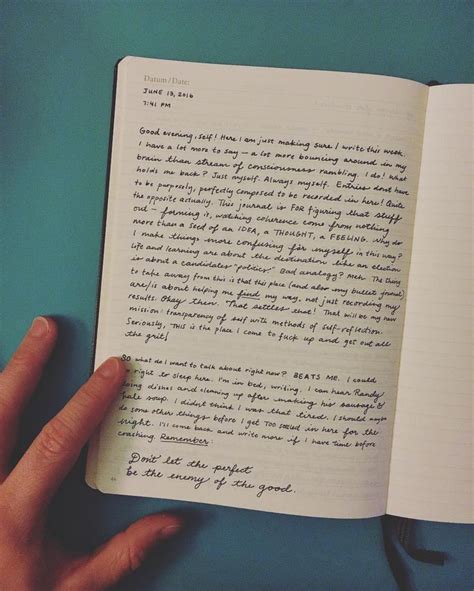 Datum / Date:
JUNE 13, 2016
7:41 PM
Good evening, self! Here I am just making sure I write this week.
I have a lot more to say — a lot more bouncing around in my
brain than stream of consciousness rambling. I do! What
holds me back? Just myself. Always myself. Entries don't have
to be purposely, perfectly composed to be recorded in here! Quite
the opposite actually. This journal is FOR figuring that stuff
out — forming it, watching coherence come from nothing
more than a seed of an IDEA, a THOUGHT, a FEELING. Why do
I make things more confusing for myself in this way?
Life and learning are about the destination like an election
is about a candidate's "politics." Bad analogy? Meh. The thing
to take away from this is that this place (and also my bullet journal)
are/is about helping me find my way, not just recording my
results. Okay then. That settles that! That will be my new
mission: transparency of self with methods of self-reflection.
Seriously, THIS is the place I come to fuck up and get out all
the grit!
So what do I want to talk about right now? BEATS ME. I could
right to sleep here. I'm in bed, writing. I can hear Randy
doing dishes and cleaning up after making his sausage &
kale soup. I didn't think I was that tired. I should maybe
do some other things before I get TOO settled in here for the
night. I'll come back and write more if I have time before
coaching. Remember:
Don't let the perfect
be the enemy of the good.